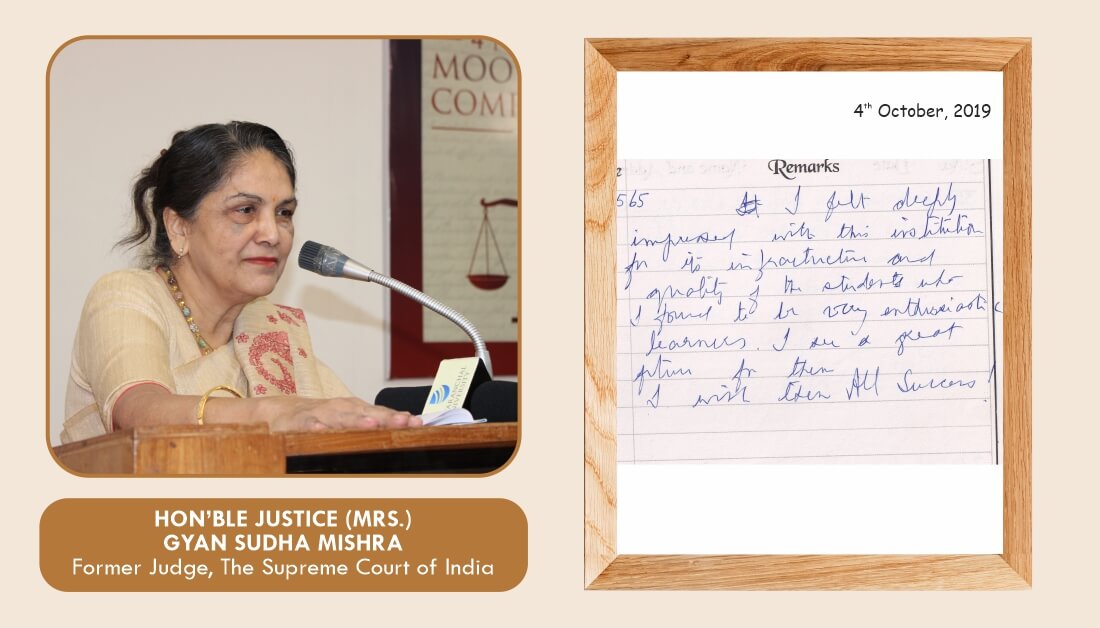 MOO
COMP
ARANCHAL
UNIVERSITY
HON’BLE JUSTICE (MRS.)
GYAN SUDHA MISHRA
Former Judge, The Supreme Court of India
4th October, 2019
Remarks
565 I felt deeply
impressed with this institution
for its infrastructure and
quality of the students who
I found to be very enthusiastic
learners. I see a great
future for them
I wish them All Success!